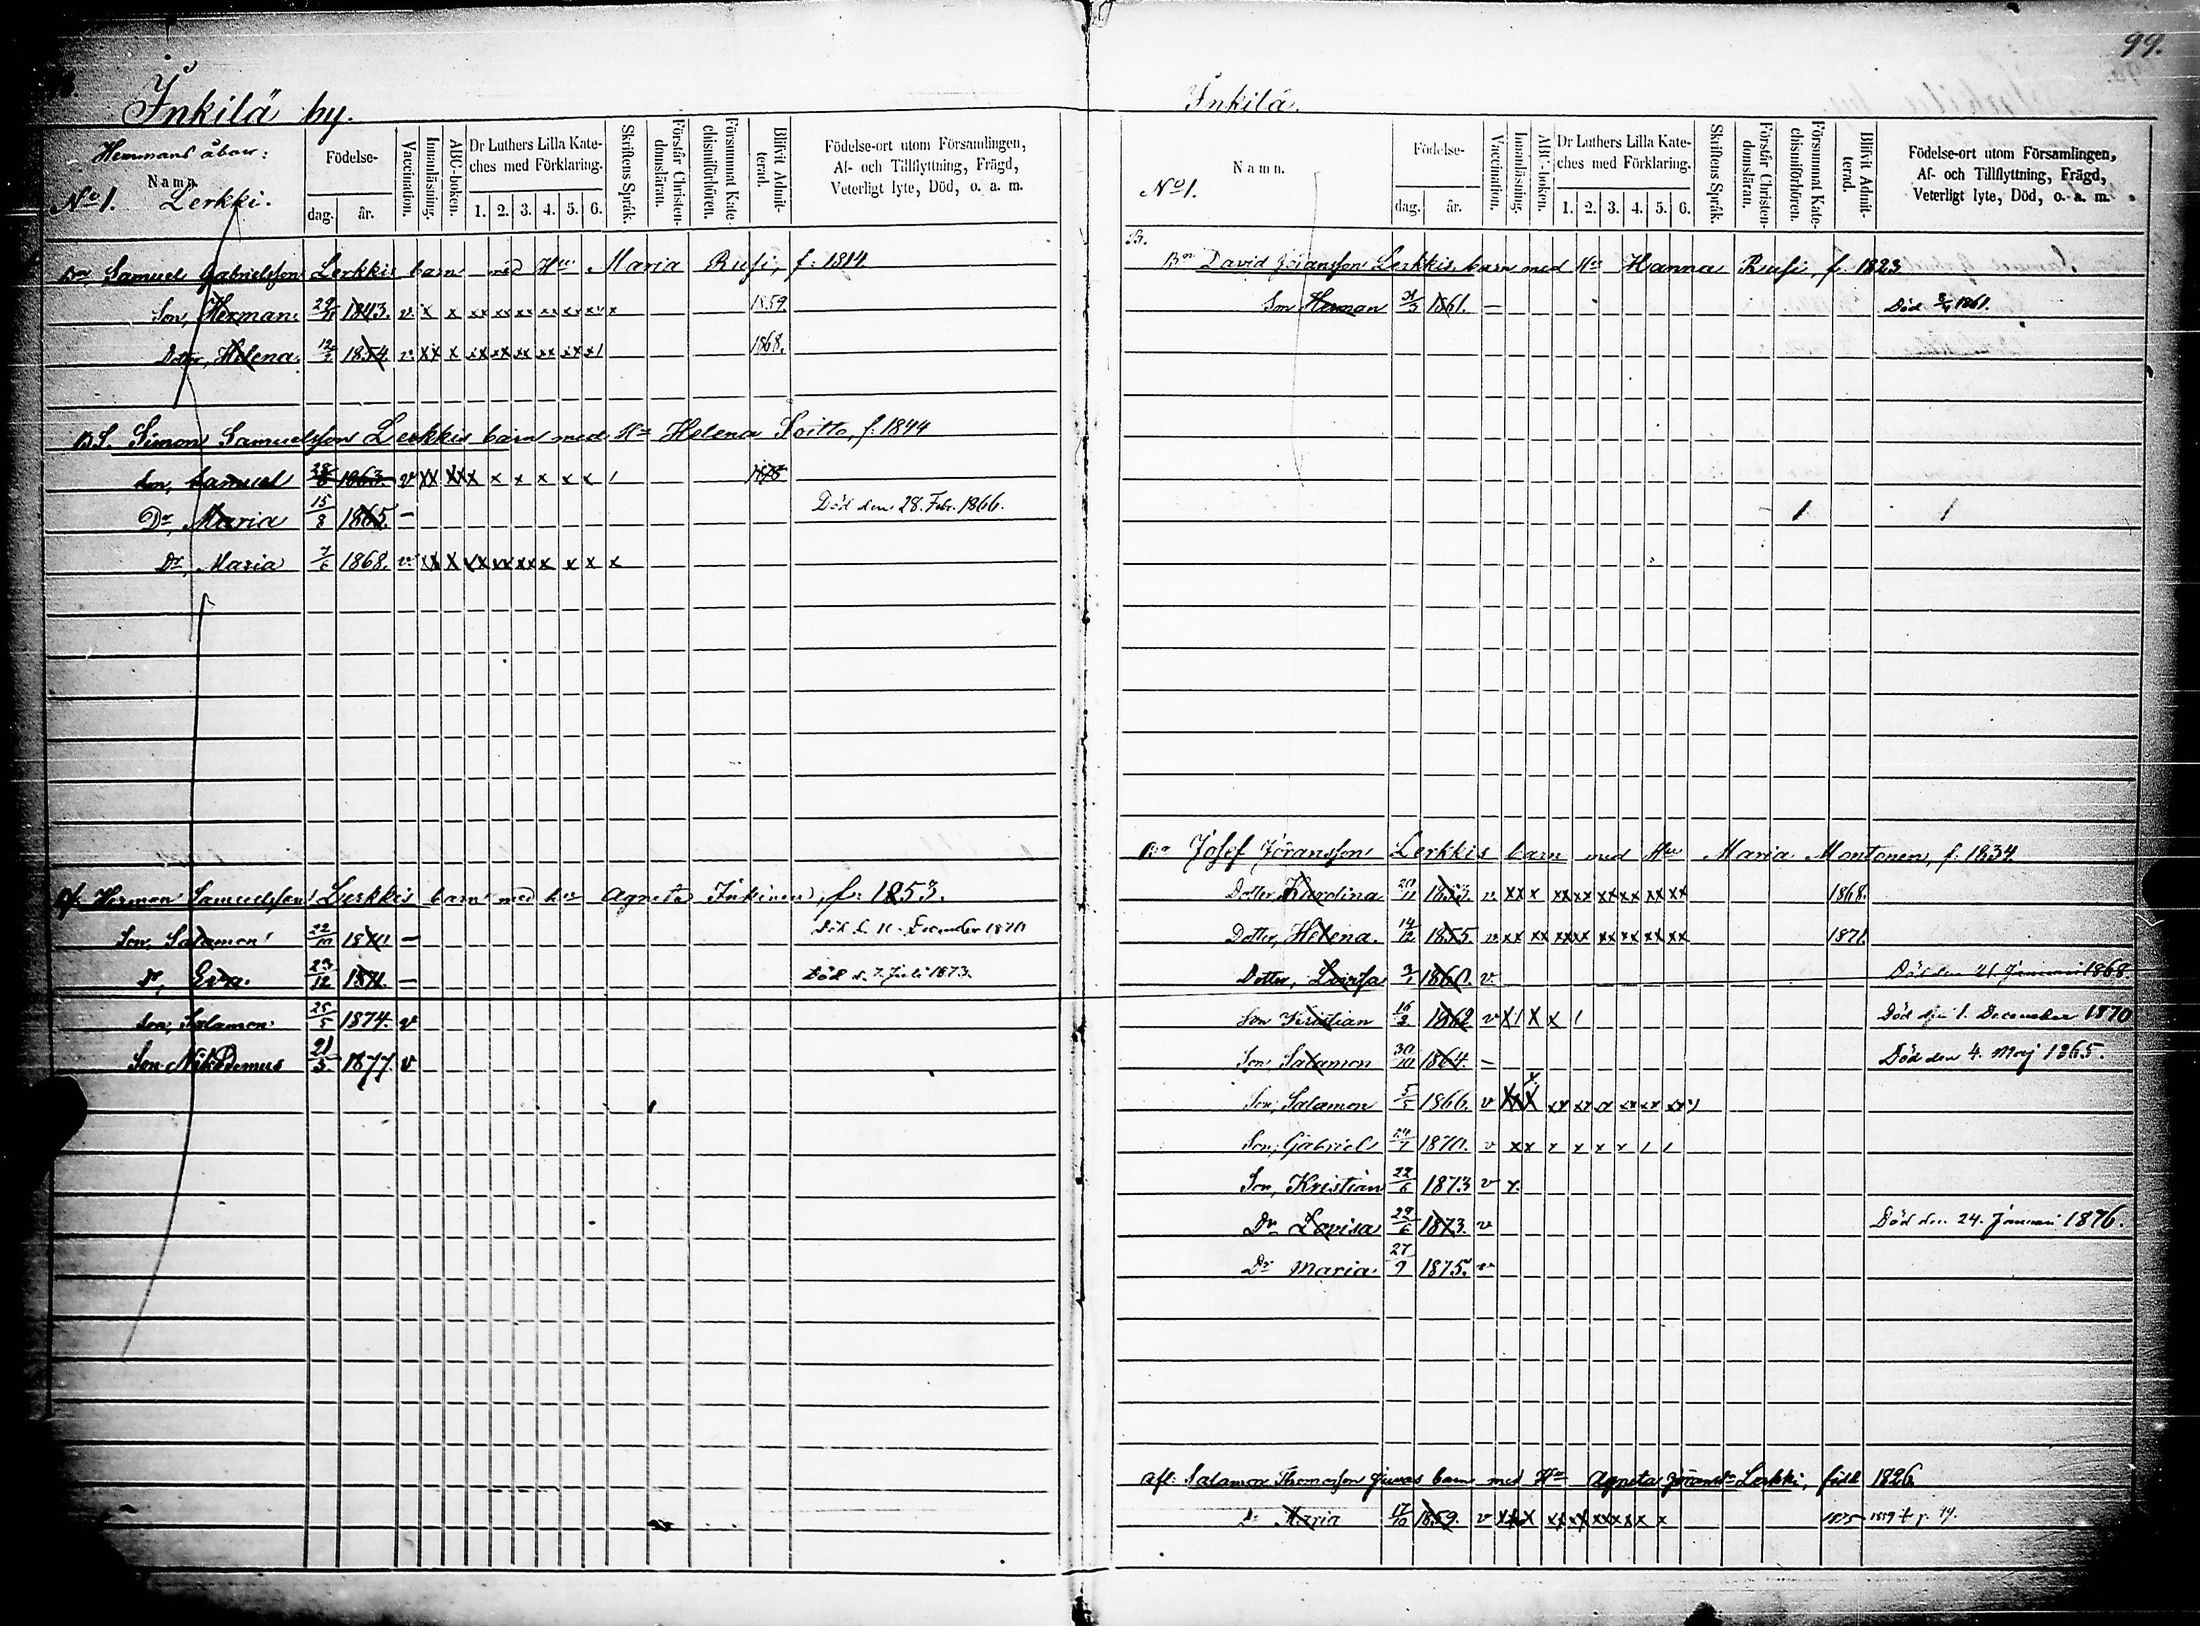 Inkilä by.
Hemmans åboer:
Namn
No 1. Lerkki.
Födelse-
dag. år.
Vaccination.
Innanläsning.
ABC-boken.
Dr Luthers Lilla Kate-
ches med Förklaring.
1. 2. 3. 4. 5. 6.
Skriftens Språk.
Förstår Christen-
domsläran.
Försummat Kate-
chismiförhören.
Blifvit Admit-
terad.
Födelse-ort utom Församlingen,
Af- och Tillflyttning, Frägd,
Veterligt lyte, Död, o. a. m.
Bn Samuel Gabrielsson Lerkkis barn med Hu Maria Rusi, f. 1814
Son, Herman. 1843. v x x xx xx xx xx xx x 1859.
Dotter, Helena. 1854. v xx x xx xx xx xx xx 1868.
Simon Samuelsson Lerkkis barn med Hu Helena Soitto, f. 1844
Son, Samuel 1863. v xx xxx x x x x x
Dr, Maria 15/8 1865. – Död den 28. Febr. 1866.
Dr, Maria 7/6 1868. v xx x xx xx xx x x x x
Herman Samuelsson Lerkkis barn med hu Agneta Inkinen, f. 1853.
Son, Salamon 22/10 1870 – Död d. 11 December 1870
Dr, Eva. 23/12 1871. – Död d. 7. Juli 1873.
Son, Salamon. 25/5 1874. v
Son Nikodemus 21/3. 1877. v
99.
Inkilä.
Namn.
No 1.
Födelse-
dag. år.
Vaccination.
Innanläsning.
ABC-boken.
Dr Luthers Lilla Kate-
ches med Förklaring.
1. 2. 3. 4. 5. 6.
Skriftens Språk.
Förstår Christen-
domsläran.
Försummat Kate-
chismiförhören.
Blifvit Admit-
terad.
Födelse-ort utom Församlingen,
Af- och Tillflyttning, Frägd,
Veterligt lyte, Död, o. a. m.
B.
Bn David Jöransson Lerkkis barn med Hu Hanna Rusi, f. 1823
Son Herman 31/3 1861. – Död 1861.
Bn Josef Jöransson Lerkkis barn med Hu Maria Montonen, f. 1834
Dotter Karolina 20/11 1853. v. xx x xx xx xx xx xx xx 1868.
Dotter, Helena. 14/12 1855. v. xx xx xx xx xx xx xx xx 1871.
Dotter, Lovisa 3/1 1860. v. Död den 21. Januari 1868.
Son Kristian 16/2 1862 v x / x x / Död den 1. December 1870
Son, Salamon 30/10 1864. – Död den 4. Maj 1865.
Son; Salamon 5/5 1866. v xx xx xx xx xx xx
Son; Gabriel 24/7 1870. v xx x x x x / /
Son, Kristian 22/6 1873 v x.
Dr Lovisa 22/6 1873. v Död den 24. Januari 1876.
Dr Maria 27/9 1875. v
Afl: Salamon Thomasson Juvas barn med Hu Agneta Jöransdr Lerkki, född 1826
Dr Maria 17/10 1859. v 1875